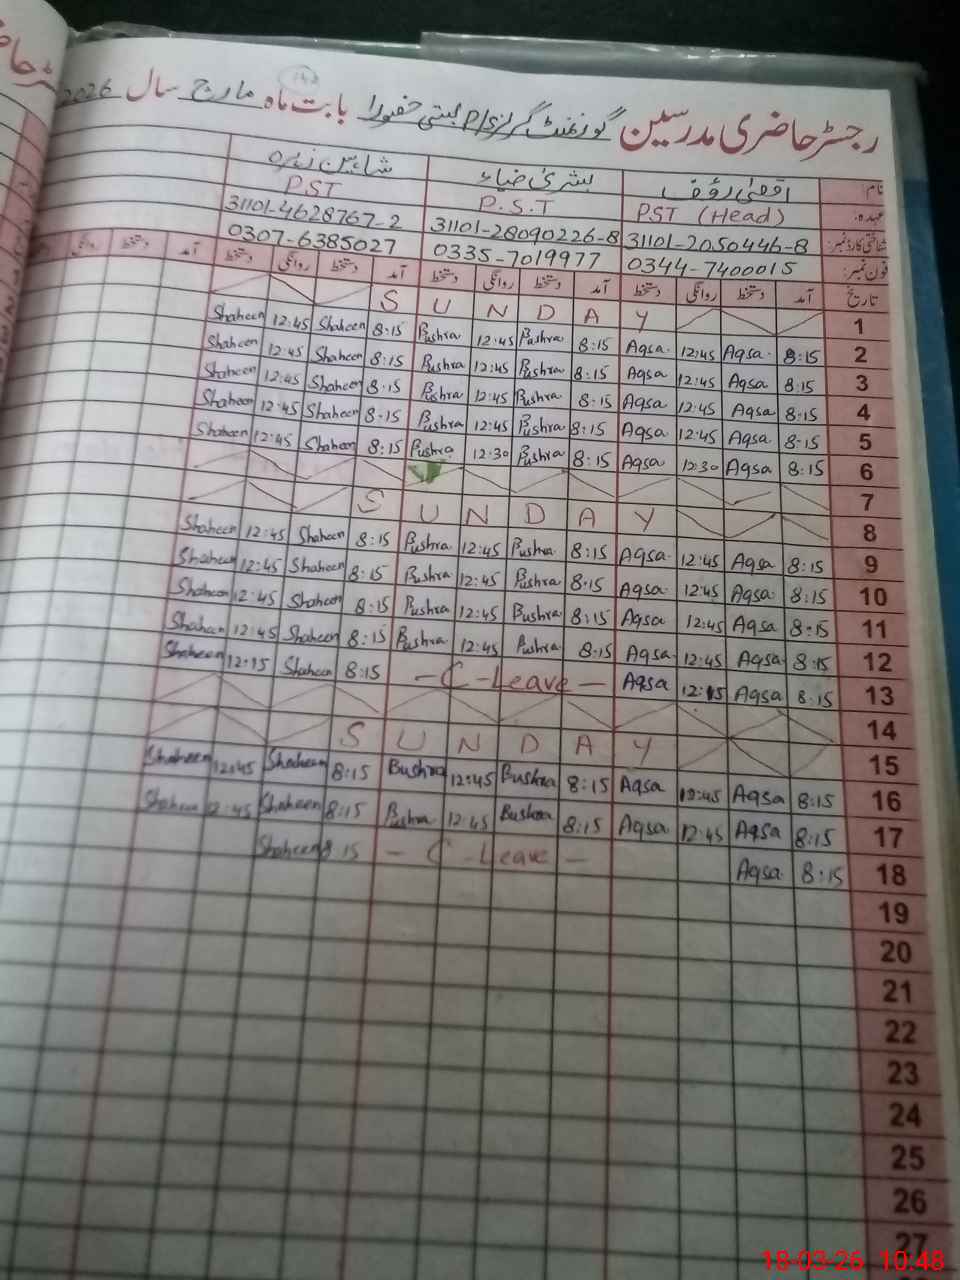 رجسٹر حاضری مدرسین گورنمنٹ گرلز P/S بستی بابت ماہ مارچ سال 2026
نام: اقصیٰ رؤف بشریٰ ضیاء شاہین زہرہ
عہدہ: PST (Head) P.S.T PST
شناختی کارڈ نمبر: 31101-2050446-8 31101-28090226-8 31101-4628767-2
فون نمبر: 0344-7400015 0335-7019977 0307-6385027
تاریخ آمد دستخط روانگی دستخط آمد دستخط روانگی دستخط آمد دستخط روانگی دستخط آمد دستخط روانگی
1 S U N D A Y
2 8:15 Aqsa 12:45 Aqsa 8:15 Bushra 12:45 Bushra 8:15 Shaheen 12:45 Shaheen
3 8:15 Aqsa 12:45 Aqsa 8:15 Bushra 12:45 Bushra 8:15 Shaheen 12:45 Shaheen
4 8:15 Aqsa 12:45 Aqsa 8:15 Bushra 12:45 Bushra 8:15 Shaheen 12:45 Shaheen
5 8:15 Aqsa 12:45 Aqsa 8:15 Bushra 12:45 Bushra 8:15 Shaheen 12:45 Shaheen
6 8:15 Aqsa 12:30 Aqsa 8:15 Bushra 12:30 Bushra 8:15 Shaheen 12:45 Shaheen
7
8 S U N D A Y
9 8:15 Aqsa 12:45 Aqsa 8:15 Bushra 12:45 Bushra 8:15 Shaheen 12:45 Shaheen
10 8:15 Aqsa 12:45 Aqsa 8:15 Bushra 12:45 Bushra 8:15 Shaheen 12:45 Shaheen
11 8:15 Aqsa 12:45 Aqsa 8:15 Bushra 12:45 Bushra 8:15 Shaheen 12:45 Shaheen
12 8:15 Aqsa 12:45 Aqsa 8:15 Bushra 12:45 Bushra 8:15 Shaheen 12:45 Shaheen
13 8:15 Aqsa 12:15 Aqsa - C - Leave - 8:15 Shaheen 12:15 Shaheen
14
15 S U N D A Y
16 8:15 Aqsa 12:45 Aqsa 8:15 Bushra 12:45 Bushra 8:15 Shaheen 12:45 Shaheen
17 8:15 Aqsa 12:45 Aqsa 8:15 Bushra 12:45 Bushra 8:15 Shaheen 12:45 Shaheen
18 8:15 Aqsa - C - Leave - 8:15 Shaheen
19
20
21
22
23
24
25
26
27
18-03-26 10:48